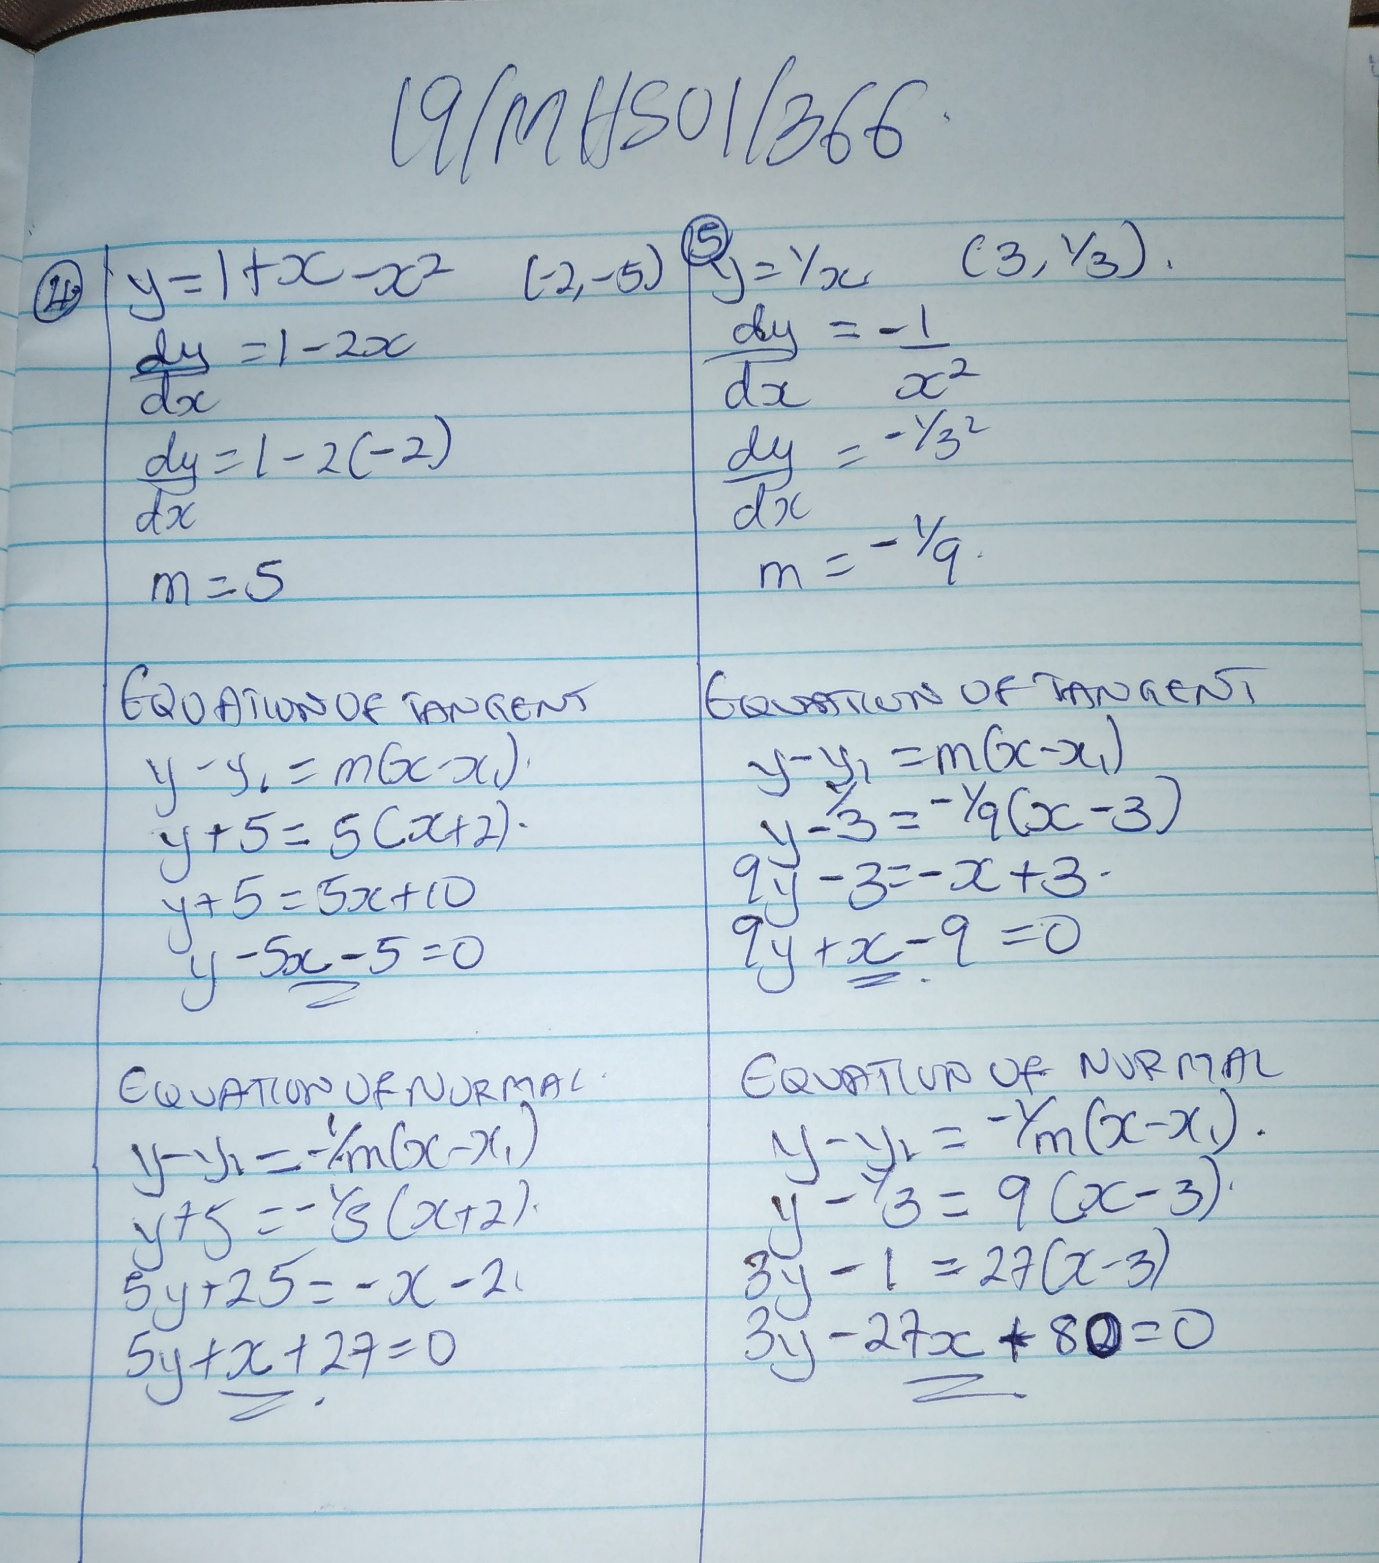 19/MHS01/366.
④
y=1+x-x² (-2,-5)
dy/dx =1-2x
dy/dx =1-2(-2)
m=5
EQUATION OF TANGENT
y-y₁=m(x-x₁).
y+5=5(x+2).
y+5=5x+10
y-5x-5=0
EQUATION OF NORMAL.
y-y₁=-1/m(x-x₁)
y+5=-1/5(x+2).
5y+25=-x-2.
5y+x+27=0
⑤
y=1/x (3,1/3).
dy/dx = -1/x²
dy/dx = -1/3²
m=-1/9.
EQUATION OF TANGENT
y-y₁=m(x-x₁)
y-1/3=-1/9(x-3)
9y-3=-x+3.
9y+x-9=0
EQUATION OF NORMAL
y-y₁=-1/m(x-x₁).
y-1/3=9(x-3).
3y-1=27(x-3)
3y-27x+80=0